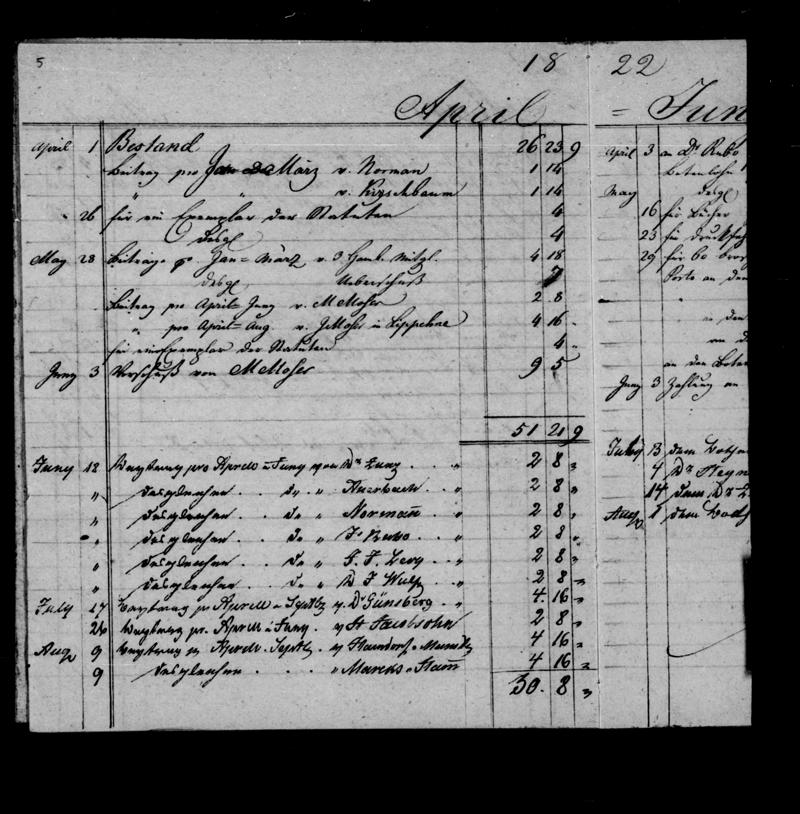 5
18 22
April = Jun
April 1 Bestand 26 23 9
Beitrag pro Jan März v. Norman 1 14
" v. Kirschbaum 1 14
" 26 für ein Exemplar der Statuten 4
Desgl 4
May 28 Beiträge pr. Jan = März v. Hamb. Mitgl. 4 18
desgl. Ueberschuß 7
Beitrag pro April = Juny v. M Moser 2 8
" pro April = Aug. v. J Moser u Lippehne 4 16 "
für ein Exemplar der Statuten 4 "
Juny 3 Vorschuß von M Moser 9 5
51 21 9
Juny 12 Beytrag pro Aprill a Juny von Dr Zunz 2 8 "
" desgleichen do " Auerbach 2 8 "
" desgleichen do " Normañ 2 8 "
" desgleichen do " Dr Rubo 2 8 "
" desgleichen do " Levy 2 8 "
" desgleichen do " Wulff 2 8 "
July 17 Beytrag pr Aprill a Septbr v. Dr Günsberg 4 16 "
26 Beytrag pr. Aprill a Juny v. H Jacobsohn 2 8 "
Aug 9 Beytrag pr Aprill a Septbr v 4 16 "
9 desgleichen " Marcks Hañ 4 16 "
30 8 "
April 3 an Dr Rubo
Botenlohn
May desgl
16 für Bücher
23 für Druck
29 für 60 bros
Porto an den
"
an den
von d
an den Boten
Juny 3 Zahlung an
July 3 dem Bothen
4 Dr
14 dem Dr Z
Aug 1 dem Both